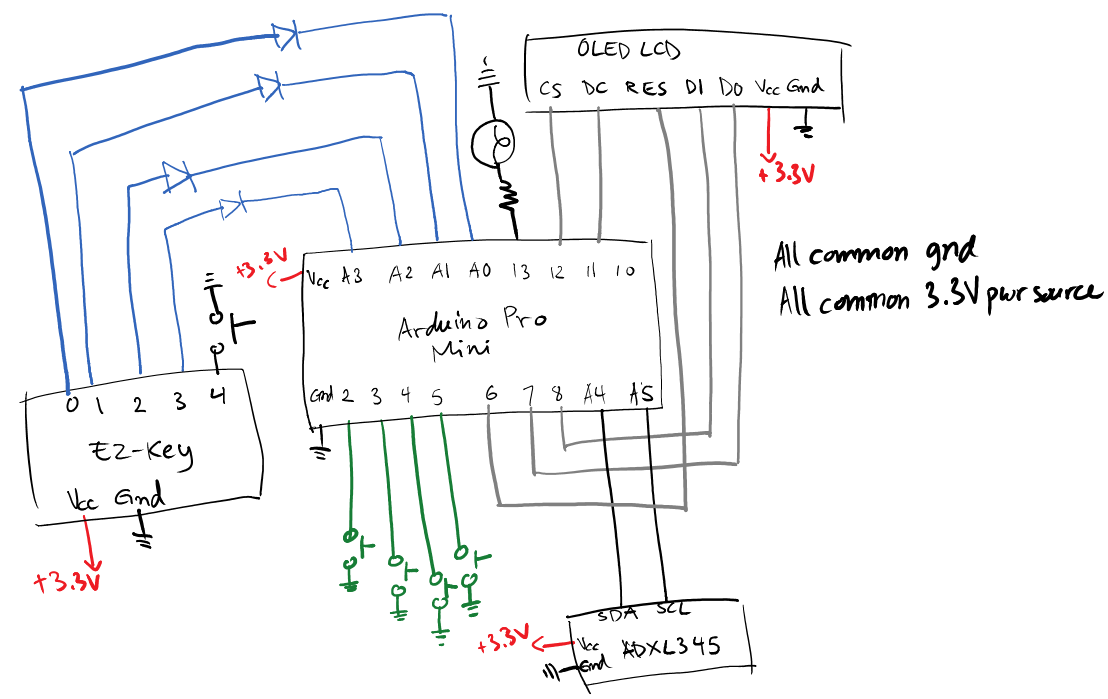 OLED LCD
CS DC RES D1 D0 Vcc Gnd
+3.3V
All common gnd
All common 3.3V pwr source
+3.3V
Vcc A3 A2 A1 A0 13 12 11 10
Arduino Pro
Mini
Gnd 2 3 4 5 6 7 8 A4 A5
0 1 2 3 4
EZ-Key
Vcc Gnd
+3.3V
SDA SCL
+3.3V
Vcc ADXL345
Gnd